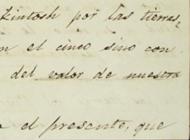 Kintosh por las tierras,
en el cinco sino con
del valor de nuestra
el presente, que